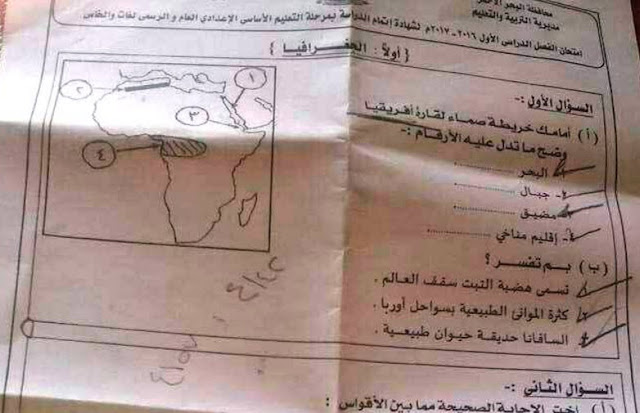 محافظة البحر الأحمر
مديرية التربية والتعليم
امتحان الفصل الدراسى الأول ٢٠١٦ - ٢٠١٧م لشهادة إتمام الدراسة بمرحلة التعليم الأساسى الإعدادي العام و الرسمى لغات والخاص
{ أولاً : الجغرافيا }
السؤال الأول :-
( أ ) أمامك خريطة صماء لقارة أفريقيا
وضح ما تدل عليه الأرقام :-
١- البحر ..............
٢- جبال ..............
٣- مضيق ..............
٤- إقليم مناخي ..............
١
٢
٣
٤
( ب ) بم تفسر ؟
١- تسمى هضبة التبت سقف العالم .
٢- كثرة الموانئ الطبيعية بسواحل أوربا .
٣- السافانا حديقة حيوان طبيعية .
السؤال الثانى :-
( أ ) اختر الإجابة الصحيحة مما بين الأقواس :